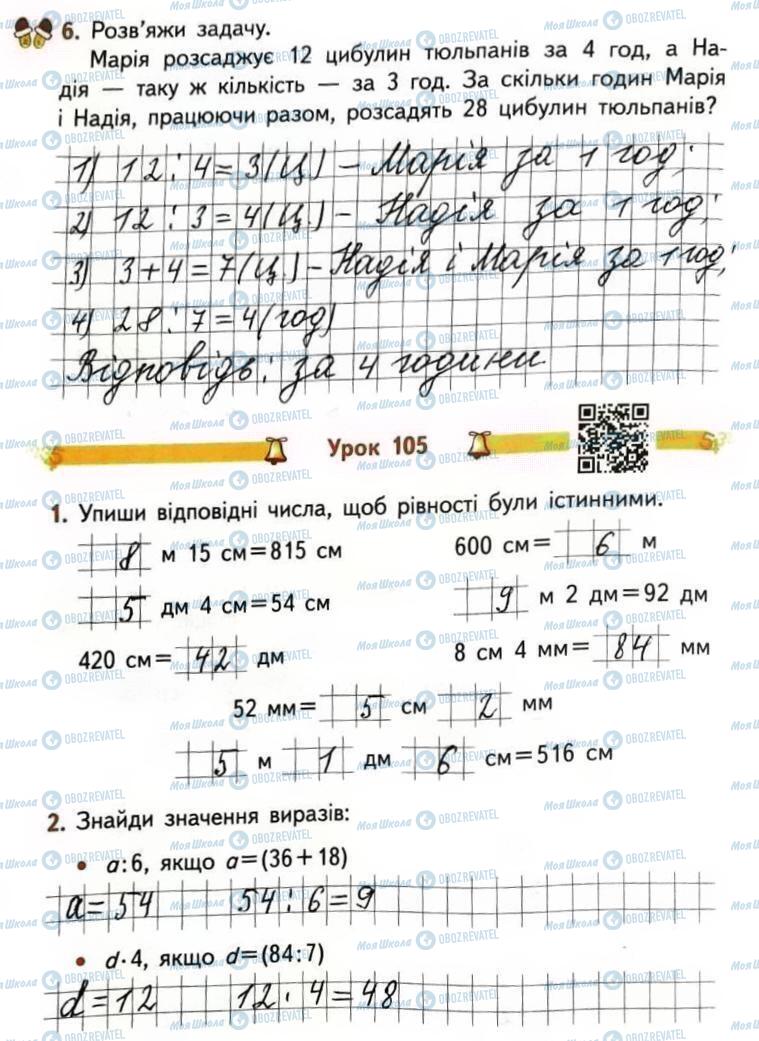 6. Розв'яжи задачу.
Марія розсаджує 12 цибулин тюльпанів за 4 год, а На-
дія — таку ж кількість — за 3 год. За скільки годин Марія
і Надія, працюючи разом, розсадять 28 цибулин тюльпанів?
1) 12 : 4 = 3 (ц.) – Марія за 1 год;
2) 12 : 3 = 4 (ц.) – Надія за 1 год;
3) 3 + 4 = 7 (ц.) – Надія і Марія за 1 год;
4) 28 : 7 = 4 (год)
Відповідь: за 4 години.
Урок 105
1. Упиши відповідні числа, щоб рівності були істинними.
8 м 15 см = 815 см 600 см = 6 м
5 дм 4 см = 54 см 9 м 2 дм = 92 дм
420 см = 42 дм 8 см 4 мм = 84 мм
52 мм = 5 см 2 мм
5 м 1 дм 6 см = 516 см
2. Знайди значення виразів:
• a : 6, якщо a = (36 + 18)
a = 54 54 : 6 = 9
• d · 4, якщо d = (84 : 7)
d = 12 12 · 4 = 48